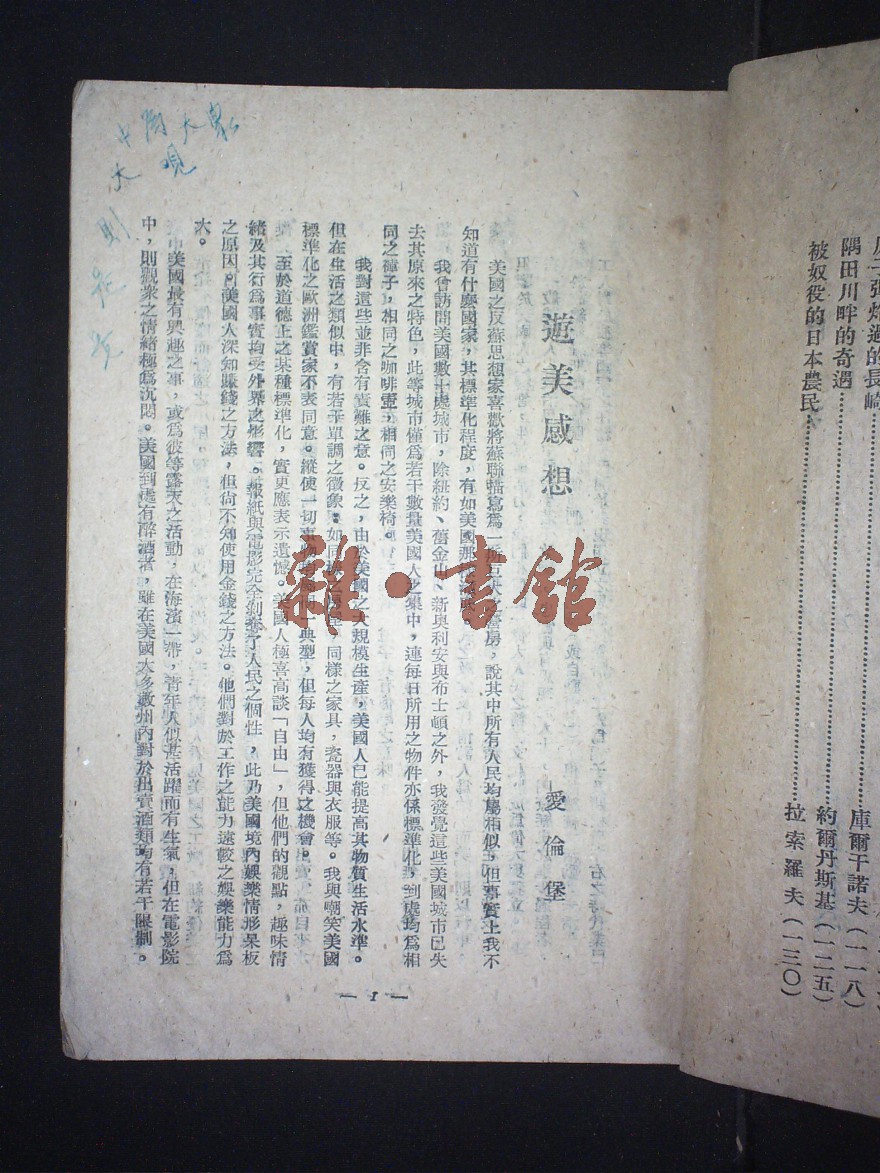 原子彈炸過的長崎
庫爾干諾夫(一一八)
隅田川畔的奇遇
約爾丹斯基(一二五)
被奴役的日本農民
拉索羅夫(一三〇)
遊美感想
愛倫堡
美國之反蘇思想家喜歡將蘇聯描寫爲一所巨大之營房,說其中所有人民均屬相似,但事實上我不
知道有什麼國家,其標準化程度,有如美國那
我曾訪問美國數十處城市,除紐約、舊金山、新奧利安與布士頓之外,我發覺這些美國城市已失
去其原來之特色,此等城市僅爲若干數量美國人之集中,連每日所用之物件亦係標準化,到處均爲相
同之褲子,相同之咖啡壺,相同之安樂椅。
我對這些並非含有責難之意。反之,由於美國之大規模生產,美國人已能提高其物質生活水準。
但在生活之類似中,有若干單調之徵象。如同樣之 同樣之家具,瓷器與衣服等。我與嘲笑美國
標準化之歐洲鑑賞家不表同意。縱使一切 同一典型,但每人均有獲得之機會。
至於道德上之某種標準化,實更應表示遺憾。美國人極喜高談「自由」,但他們的觀點,趣味情
緒及其行爲事實均受外界之影響。報紙與電影完全剝奪了人民之個性,此乃美國境內娛樂情形呆板
之原因。美國人深知賺錢之方法,但尙不知使用金錢之方法。他們對於工作之能力遠較之娛樂能力爲
大。
美國最有興趣之事,或爲彼等露天之活動,在海濱一帶,靑年人似甚活躍而有生氣,但在電影院
中,則觀衆之情緒極爲沉悶。美國到處有醉酒者,雖在美國大多數州內對於出賣酒類均有若干限制。
— 1 —
雜·書館